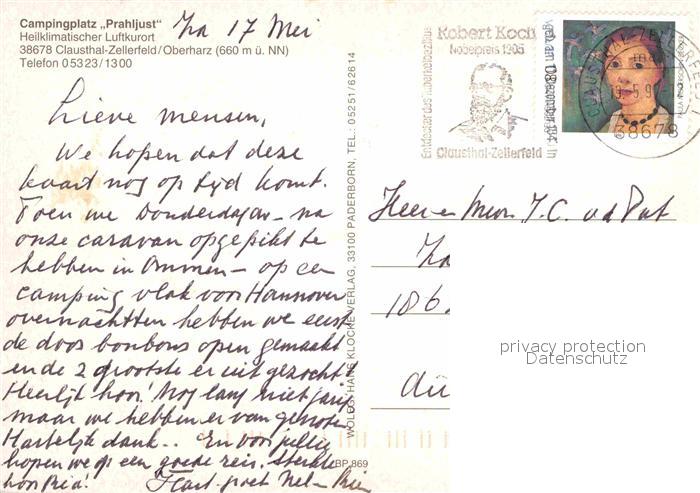 Campingplatz „Prahljust"
Heilklimatischer Luftkurort
38678 Clausthal-Zellerfeld/Oberharz (660 m ü. NN)
Telefon 05323/1300
Za 17 Mei
Lieve mensen,
We hopen dat deze
kaart nog op tijd komt.
Toen we Donderdagav- na
onze caravan opgepikt te
hebben in Ommen – op een
camping vlak voor Hannover
overnachtten hebben we eerst
de doos bonbons open gemaakt
en de 2 grootste er uit gezocht
Heerlijk hoor! Nog lang niet jarig
maar we hebben er van genoten
Hartelijk dank.. En voor jullie
hopen we op een goede reis. Sterkte
hoor Ria! Hart. groet Nel
WOLFGANG HANS KLOCKE VERLAG, 33100 PADERBORN, TEL.: 05251/62614
BP 869
Robert Koch
Nobelpreis 1905
Entdecker des Tuberkelbazillus
geb. am 11. Dezember 1843 in
Clausthal-Zellerfeld
CLAUSTHAL-ZELLERFELD 1
38678
Heer en Mevr. J.C. v.d. Put
Za
186
privacy protection
Datenschutz